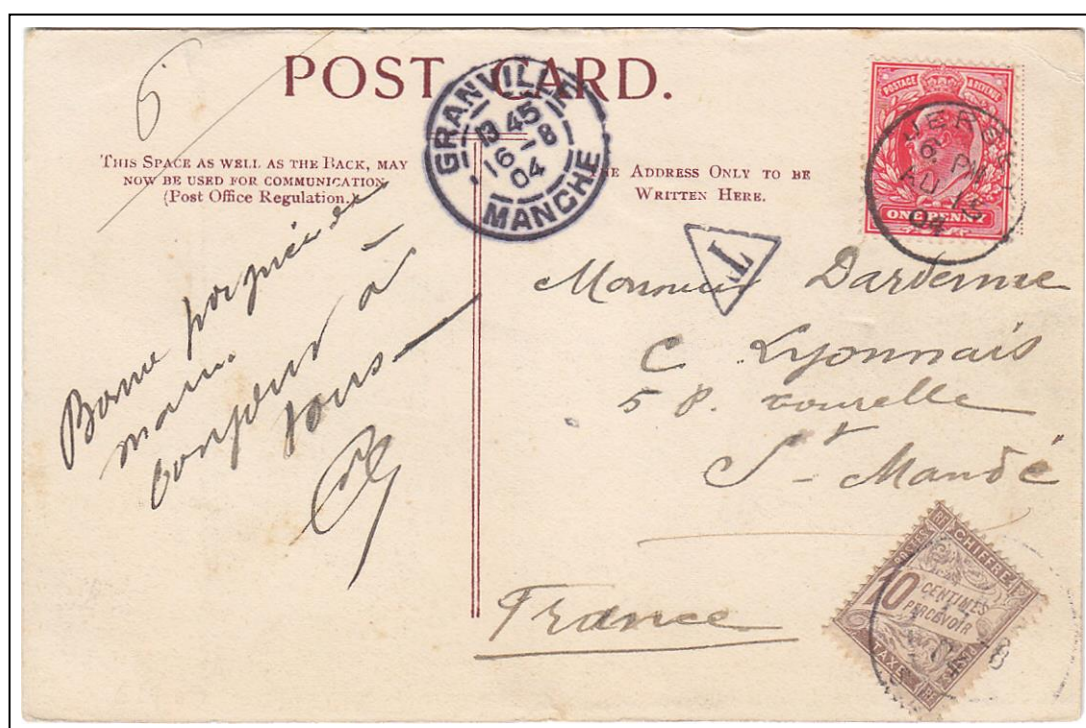 6
POST CARD.
THIS SPACE AS WELL AS THE BACK, MAY
NOW BE USED FOR COMMUNICATION
(Post Office Regulation.)
THE ADDRESS ONLY TO BE
WRITTEN HERE.
GRANVILLE
13 45
16 - 8
04
MANCHE
POSTAGE & REVENUE
ONE PENNY
JERSEY
6 PM
AU 15
04
T
Bonne
main.
bonjour à
tous
Monsieur Dardenne
C Lyonnais
5 P. tourelle
St-Mandé
France
POSTES
CHIFFRE
10 CENTIMES
A PERCEVOIR
TAXE
RF